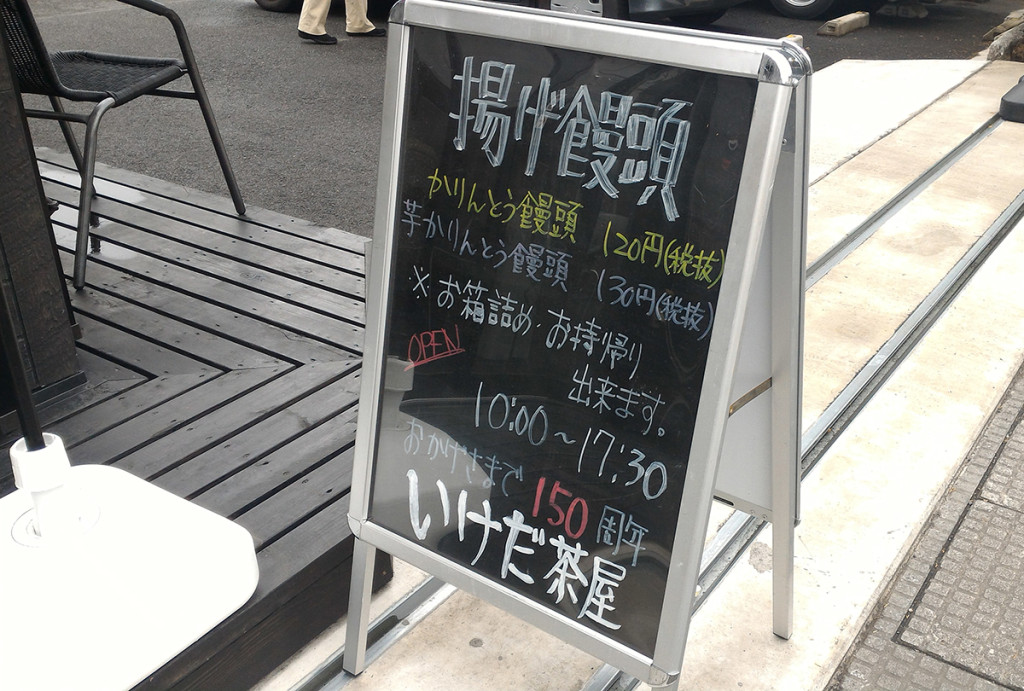 揚げ饅頭
かりんとう饅頭 120円(税抜)
芋かりんとう饅頭 130円(税抜)
※お箱詰め・お持帰り
出来ます。
OPEN
10:00～17:30
おかげさまで 150周年
いけだ茶屋